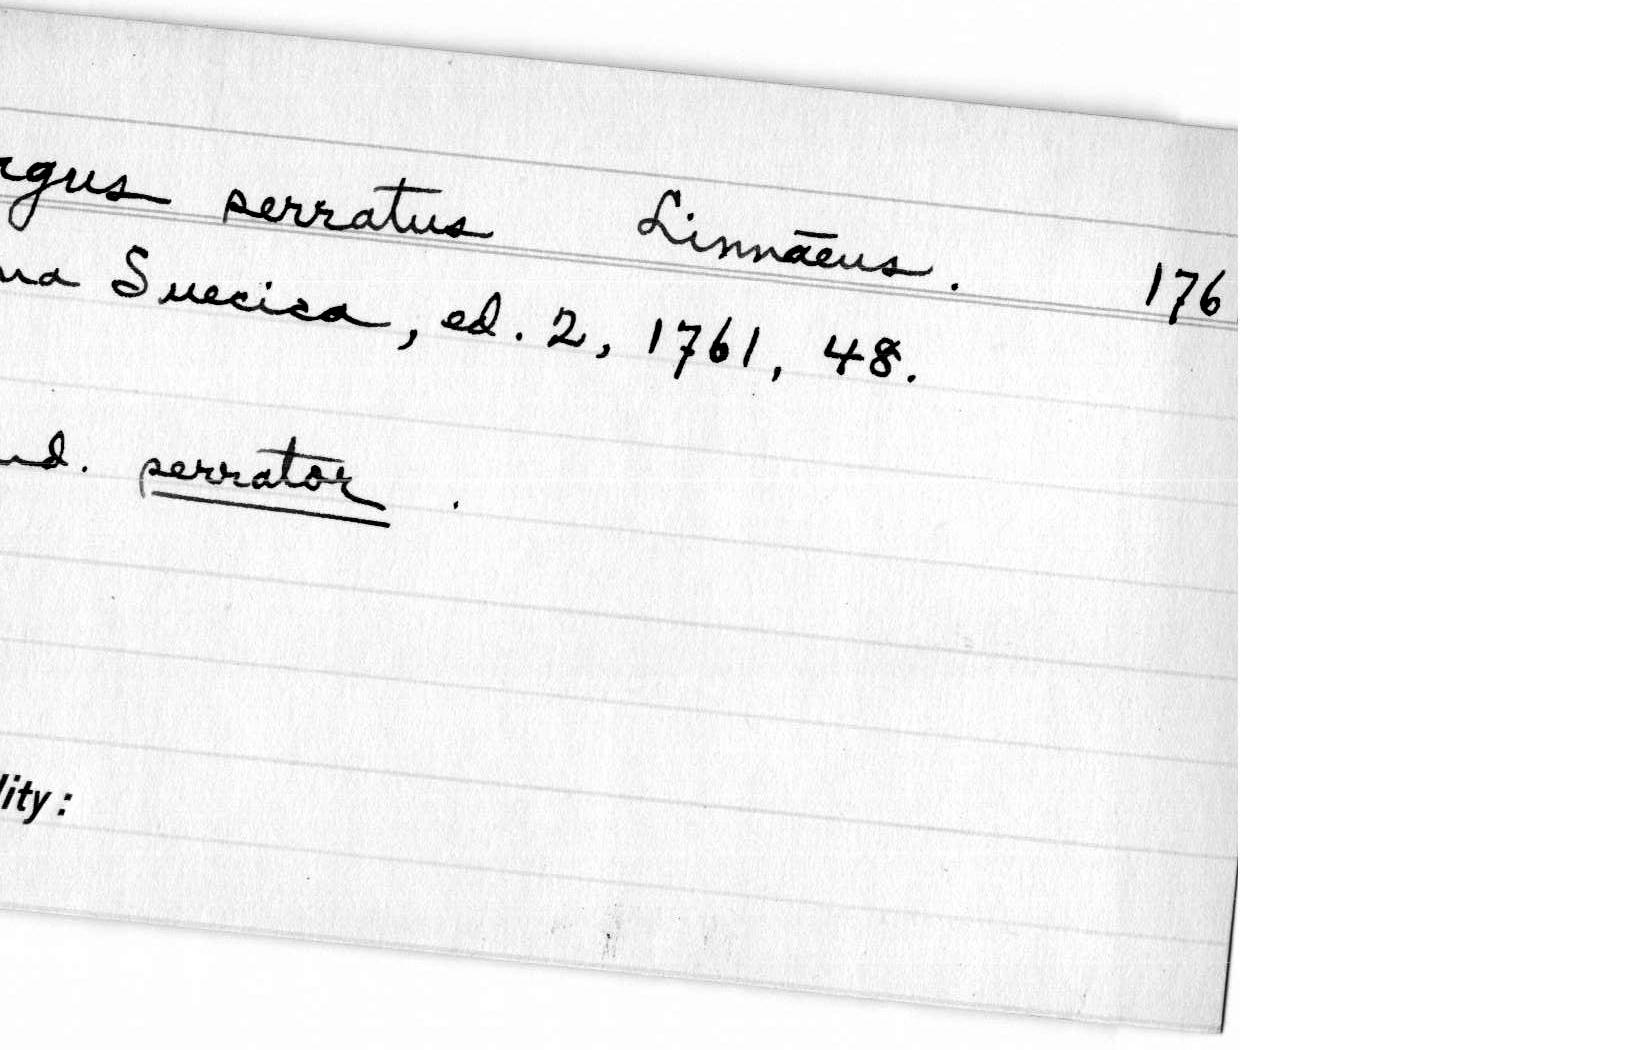 rgus serratus Linnaeus. 176
na Suecica, ed. 2, 1761, 48.
nd. serrator .
lity: